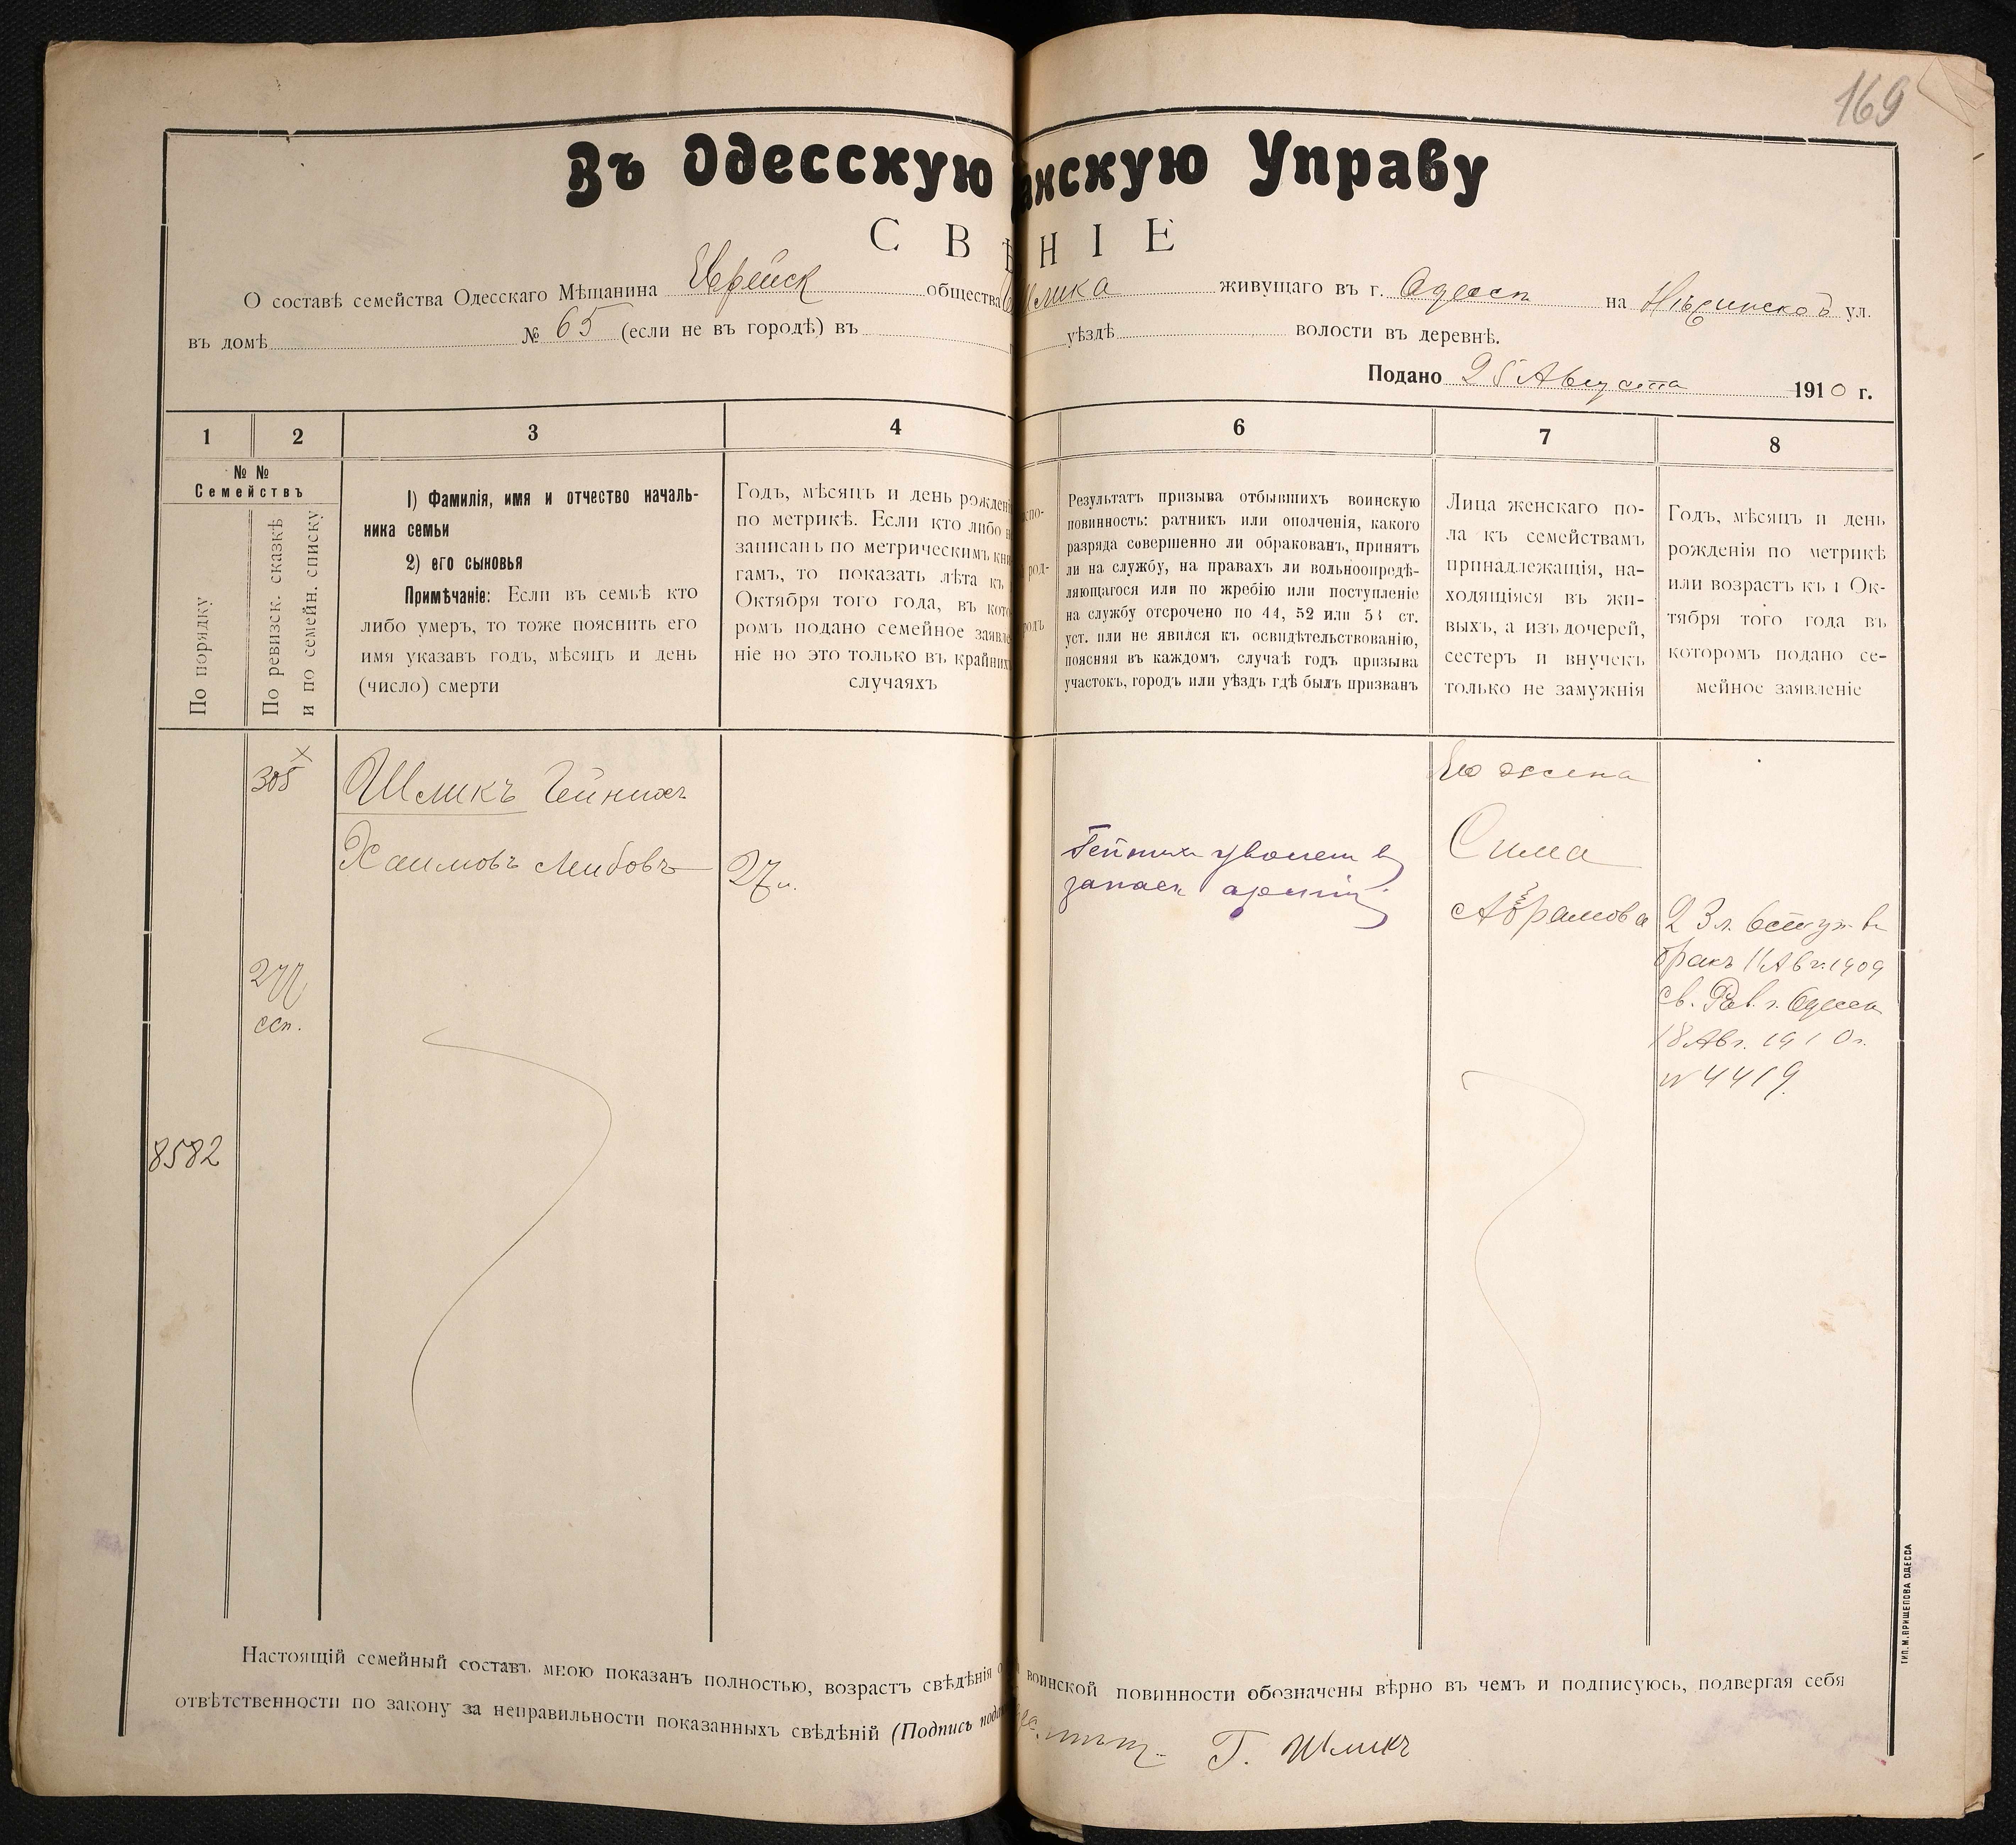 169
Въ Одесскую анскую Управу
СВѢНІЕ
О составѣ семейства Одесскаго Мѣщанина Еврейск общества Шмика живущаго въ г. Одессѣ на Нѣжинской ул.
въ домѣ № 65 (если не въ городѣ) въ уѣздѣ волости въ деревнѣ.
Подано 25 Августа 1910 г.
1 2 3 4 6 7 8
№ № Семействъ
По порядку
По ревизск. сказкѣ и по семейн. списку
1) Фамилія, имя и отчество началь-
ника семьи
2) его сыновья
Примѣчаніе: Если въ семьѣ кто
либо умеръ, то тоже пояснить его
имя указавъ годъ, мѣсяцъ и день
(число) смерти
Годъ, мѣсяцъ и день рожденi
по метрикѣ. Если кто либо н
записанъ по метрическимъ кни
гамъ, то показать лѣта къ
Октября того года, въ кото
ромъ подано семейное заявле
ніе но это только въ крайних
случаяхъ
спо-
род-
родъ
Результатъ призыва отбывшихъ воинскую
повинность: ратникъ или ополченія, какого
разряда совершенно ли обракованъ, принятъ
ли на службу, на правахъ ли вольноопредѣ-
ляющагося или по жребію или поступленіе
на службу отсрочено по 44, 52 или 53 ст.
уст. или не явился къ освидѣтельствованію,
поясняя въ каждомъ случаѣ годъ призыва
участокъ, городъ или уѣздъ гдѣ былъ призванъ
Лица женскаго по-
ла къ семействамъ
принадлежащія, на-
ходящіяся въ жи-
выхъ, а изъ дочерей,
сестеръ и внучекъ
только не замужнія
Годъ, мѣсяцъ и день
рожденія по метрикѣ
или возрастъ къ 1 Ок-
тября того года въ
которомъ подано се-
мейное заявленіе
305 x
277
ссп.
8582
Шмикъ Гейнихъ
Хаимовъ Лейбовъ
27 л.
Гейнихъ уволен в
запасъ арміи
Его жена
Сима
Абрамова
23 л. вступ. въ
бракъ 11 Авг. 1909
св. Рав. г. Одессы
18 Авг. 1910 г.
№ 4419
Настоящій семейный составъ мною показанъ полностью, возрастъ свѣдѣнія о воинской повинности обозначены вѣрно въ чемъ и подписуюсь, подвергая себя
отвѣтственности по закону за неправильности показанныхъ свѣдѣній (Подпись пода
Г. Шмикъ
ТИП. М. ПРИЩЕПОВА ОДЕССА